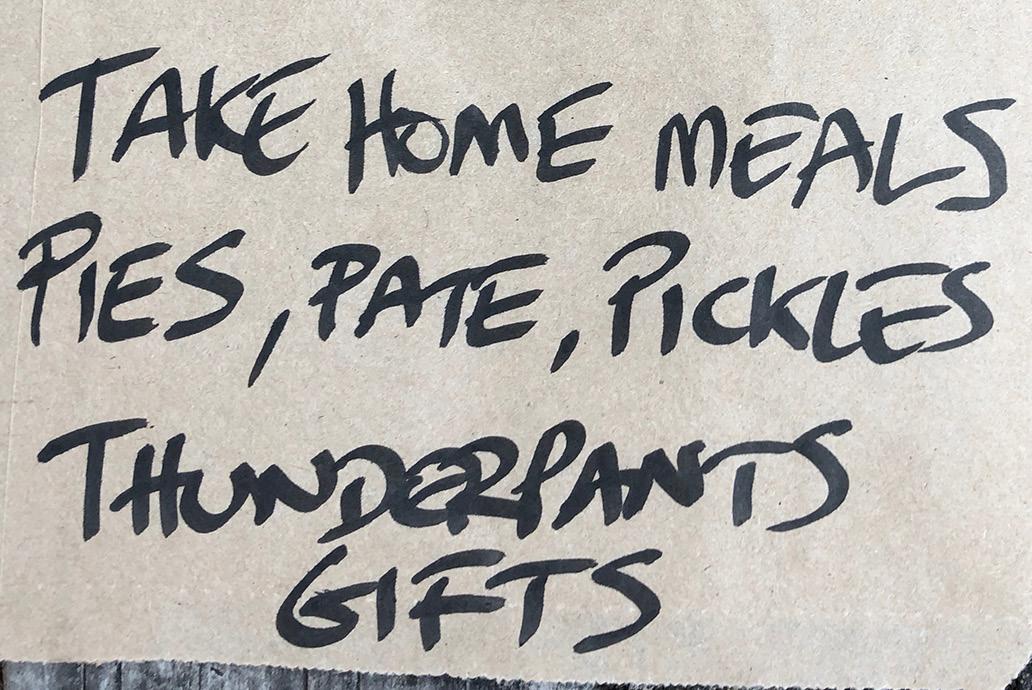 TAKE HOME MEALS
PIES, PATE, PICKLES
THUNDERPANTS
GIFTS